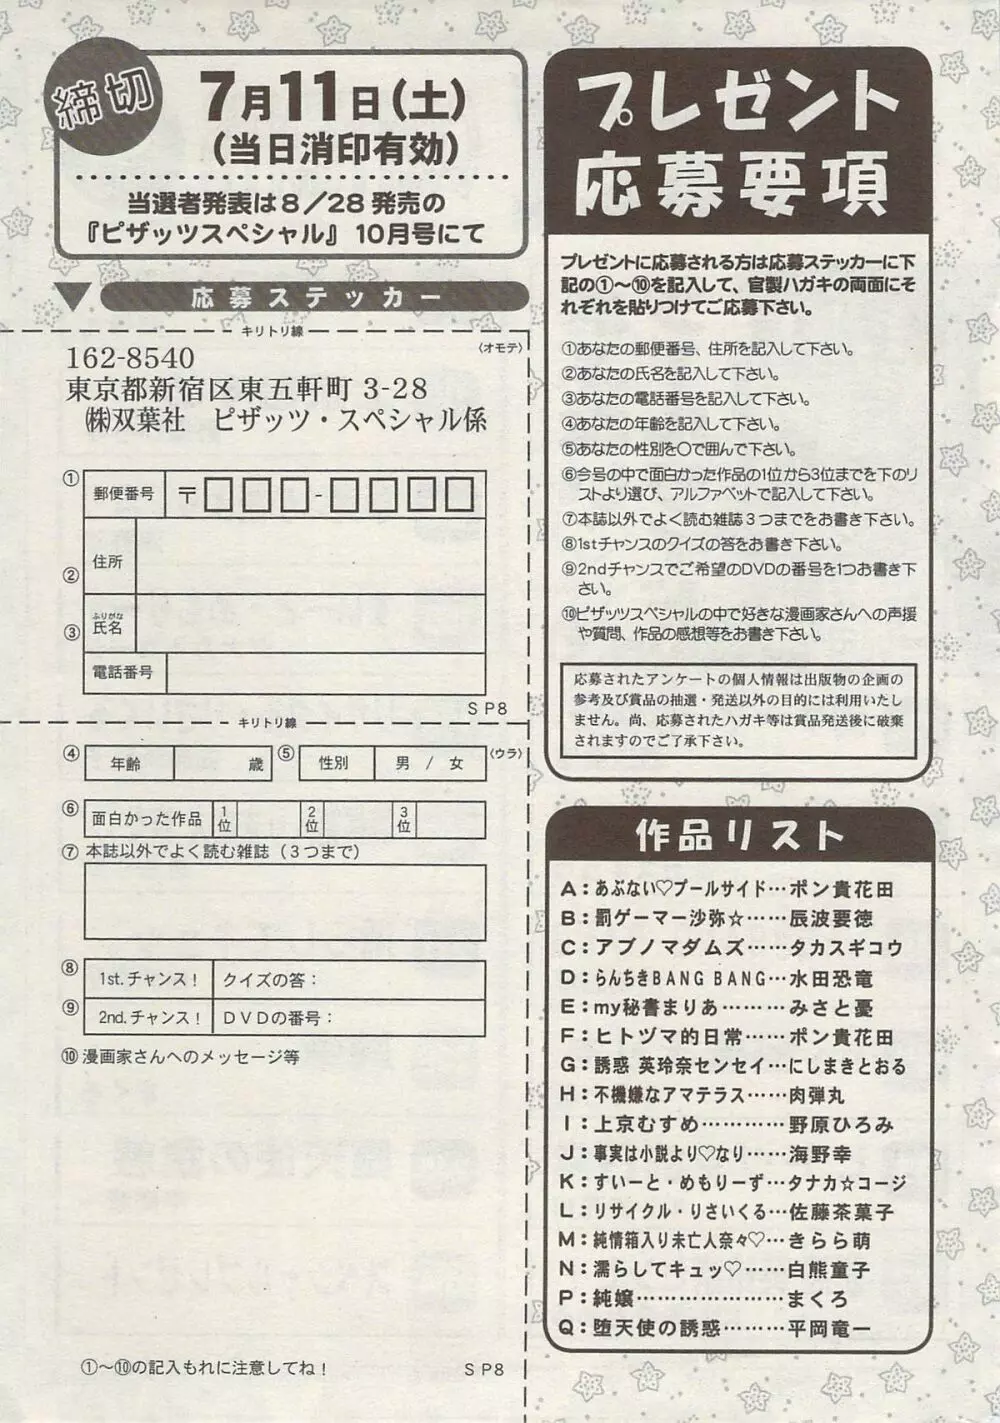 締切
7月11日（土）
（当日消印有効）
当選者発表は8／28発売の
『ピザッツスペシャル』10月号にて
応募ステッカー
キリトリ線
〈オモテ〉
162-8540
東京都新宿区東五軒町 3-28
㈱双葉社　ピザッツ・スペシャル係
① 郵便番号 〒□□□-□□□□
② 住所
③ ふりがな
氏名
電話番号
SP8
キリトリ線
〈ウラ〉
④ 年齢 歳 ⑤ 性別 男 / 女
⑥ 面白かった作品 1位 2位 3位
⑦ 本誌以外でよく読む雑誌（3つまで）
⑧ 1st.チャンス！ クイズの答：
⑨ 2nd.チャンス！ DVDの番号：
⑩ 漫画家さんへのメッセージ等
①〜⑩の記入もれに注意してね！
SP8
プレゼント
応募要項
プレゼントに応募される方は応募ステッカーに下
記の①〜⑩を記入して、官製ハガキの両面にそ
れぞれを貼りつけてご応募下さい。
①あなたの郵便番号、住所を記入して下さい。
②あなたの氏名を記入して下さい。
③あなたの電話番号を記入して下さい。
④あなたの年齢を記入して下さい。
⑤あなたの性別を〇で囲んで下さい。
⑥今号の中で面白かった作品の1位から3位までを下のリ
ストより選び、アルファベットで記入して下さい。
⑦本誌以外でよく読む雑誌3つまでをお書き下さい。
⑧1stチャンスのクイズの答をお書き下さい。
⑨2ndチャンスでご希望のDVDの番号を1つお書き下
さい。
⑩ピザッツスペシャルの中で好きな漫画家さんへの声援
や質問、作品の感想等をお書き下さい。
応募されたアンケートの個人情報は出版物の企画の
参考及び賞品の抽選・発送以外の目的には利用いたし
ません。尚、応募されたハガキ等は賞品発送後に破棄
されますのでご了承下さい。
作品リスト
A：あぶない♡プールサイド…ポン貴花田
B：罰ゲーマー沙弥☆……辰波要徳
C：アブノマダムズ……タカスギコウ
D：らんちきBANG BANG…水田恐竜
E：my秘書まりあ………みさと憂
F：ヒトヅマ的日常…ポン貴花田
G：誘惑 英玲奈センセイ…にしまきとおる
H：不機嫌なアマテラス……肉弾丸
I：上京むすめ…………野原ひろみ
J：事実は小説より♡なり…海野幸
K：すいーと・めもりーず…タナカ☆コージ
L：リサイクル・りさいくる…佐藤茶菓子
M：純情箱入り未亡人奈々♡…きらら萌
N：濡らしてキュッ♡……白熊童子
P：純嬢………………まくろ
Q：堕天使の誘惑……平岡竜一